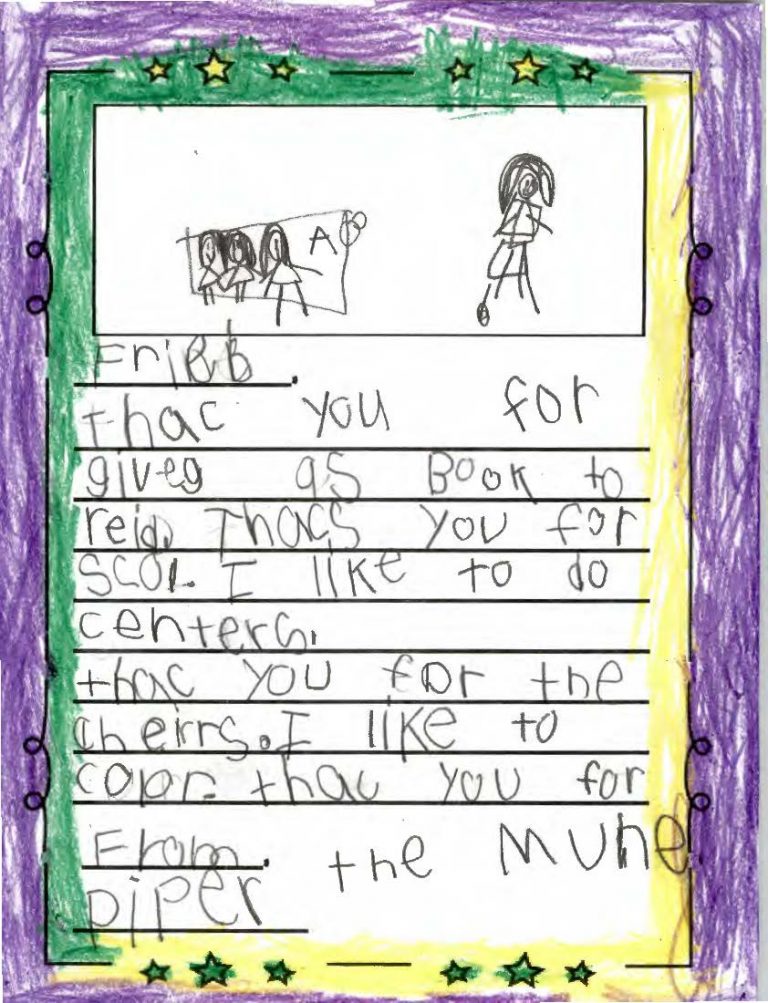 A
Frieb.
thac you for
giveg as Book to
reid. Thacs you for
scol. I like to do
centers.
thac you for the
cheirrs. I like to
color. thac you for
the Mune
From.
piper